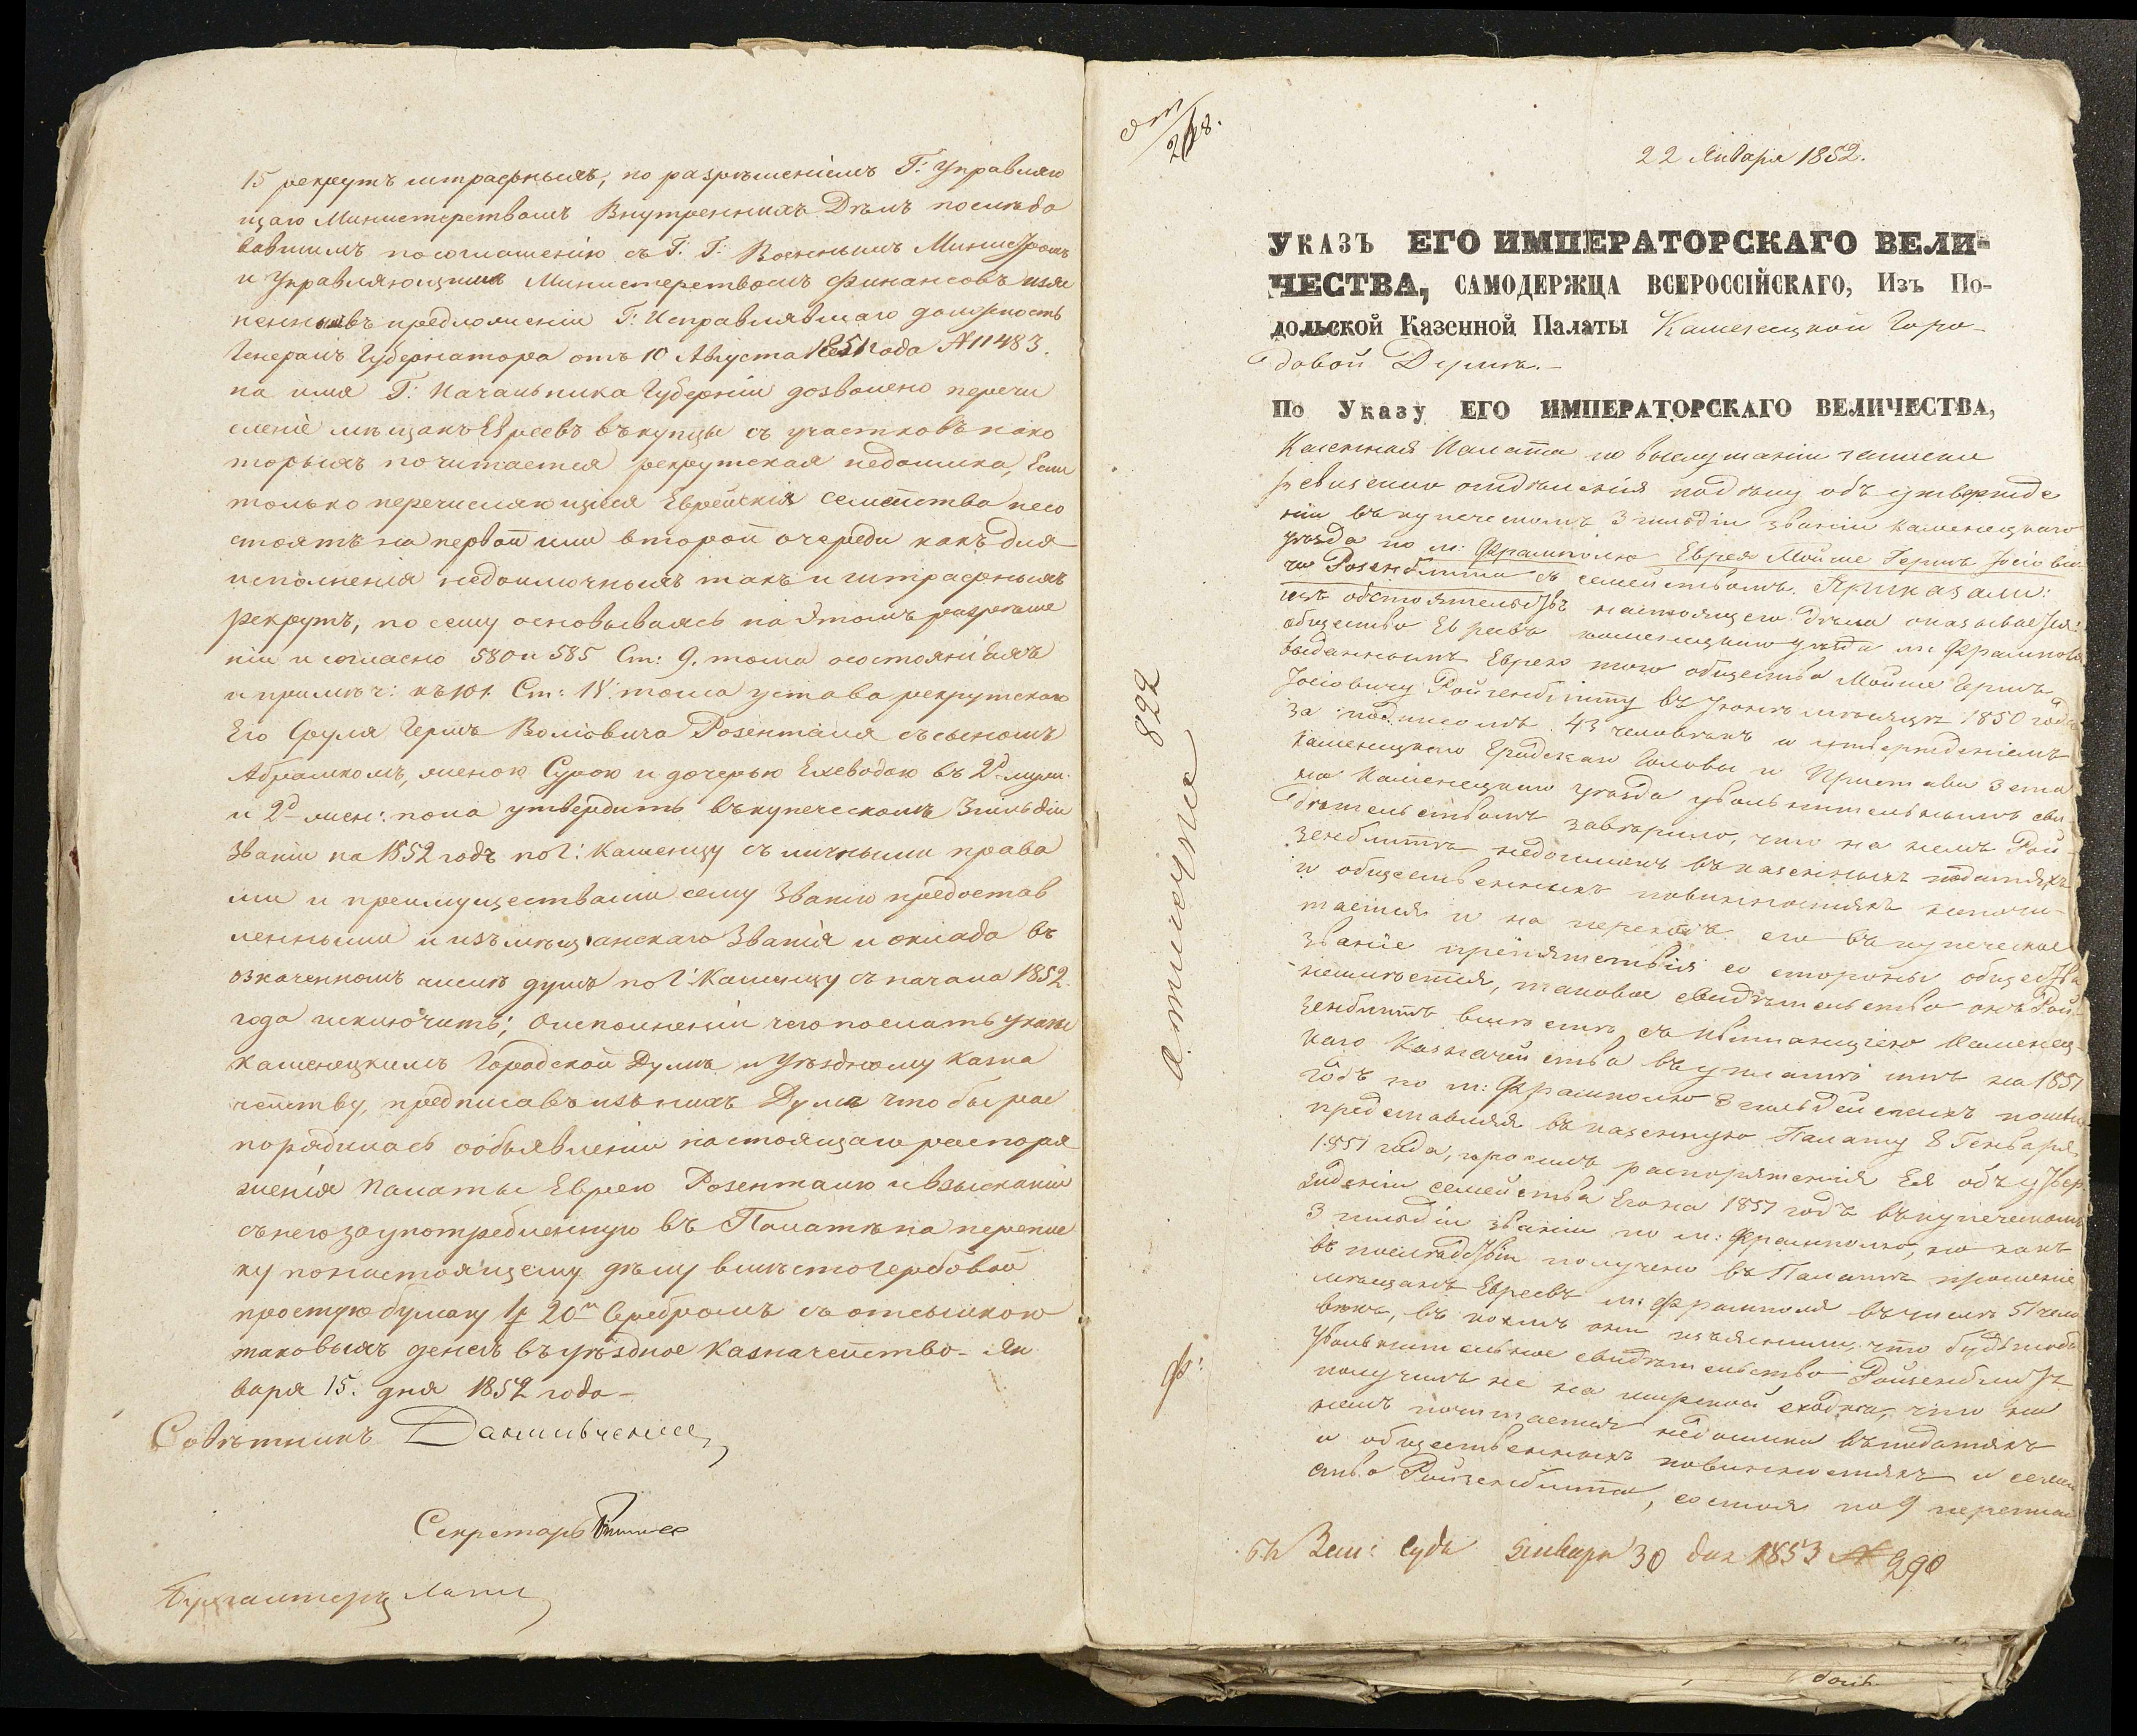 15 рекрутъ штрафныхъ, по разрѣшеніемъ Г: Управляю
щаго Министерствомъ Внутреннихъ Дѣлъ послѣдо
вавшимъ посоглашенію съ Г: Г: Военнымъ Министромъ
и Управляющимъ Министерствомъ Финансовъ изъя
ненныхъ предложеніи Г: Исправлявшаго должность
Генералъ Губернатора отъ 10 Августа 1851 года № 11483.
на имя Г: Начальника Губерніи дозволено перечи
сленіе мѣщанъ Евреевъ въ купцы съ участковъ на ко
торыхъ почитается рекрутская недоимка, Если
только перечисляющіяся Еврейскія семейства несо
стоятъ на первой или второй очереди какъ для
исполненія недоимочныхъ такъ и штрафныхъ
рекрутъ, по сему основываясь на этомъ разрѣше
ніи и согласно 580 и 585 Ст: 9. тома о состояніяхъ
и примѣч: къ 101. Ст: IV: тома устава рекрутскаго
Его Сруля Герша Волiовича Розенталя съ сыномъ
Абрамкомъ, женою Сурою и дочерью Ехеводою въ 2х муж.
и 2х жен: пола утвердить въ купеческомъ 3 гильдіи
званіи на 1852 годъ по Г: Каменцу съ личными права
ми и преимуществами сему званію предостав
ленными и изъ мѣщанскаго званія и оклада въ
означенномъ числѣ душъ по Г: Каменцу съ начала 1852.
года исключить; О исполненіи чего послать указы
Каменецкимъ Городской Думѣ и Уѣздному Казна
чейству, предписавъ изъ нихъ Думѣ что бы рас
порядилась о объявленіи настоящаго распоря
женія Палаты Еврею Розенталю и взысканіи
съ него за употребленную въ Палатѣ на переписк
ку по настоящему дѣлу вмѣсто гербовой
простую бумагу 1 р 20 к Серебромъ съ отсылкою
таковыхъ денегъ въ уѣздное Казначейство. Ян
варя 15. дня 1852 года
Совѣтникъ Данильченко
Секретарь
Бухгалтеръ
22 Января 1852.
Указъ ЕГО ИМПЕРАТОРСКАГО ВЕЛИ-
ЧЕСТВА, САМОДЕРЖЦА ВСЕРОССІЙСКАГО, Изъ По-
дольской Казенной Палаты Каменецкой Горо-
довой Думѣ.
По Указу ЕГО ИМПЕРАТОРСКАГО ВЕЛИЧЕСТВА,
Казенная Палата по выслушаніи записки
Ревизскаго отдѣленія по дѣлу объ утвержде
ніи въ купеческомъ 3 гильдіи званіи Каменецкаго
уѣзда по м: Фрамполю Еврея Мойше Герша Іосіови
ча Розенблита съ семействомъ. Приказали:
изъ обстоятельствъ настоящего дѣла оказывается:
общество Евреевъ Каменецкаго уѣзда м: Фрамполя
выданнымъ Еврею того общества Мойше Гершъ
Іосіовичу Ройзенблиту въ Іюнѣ мѣсяцѣ 1850 года
за подписомъ 43 человѣкъ и утвержденіемъ
Каменецкаго Градскаго Головы и Пристава 3 стана
Каменецкаго уѣзда увольнительнымъ сви-
дѣтельствомъ завѣрило, что на немъ Рой-
зенблитѣ недоимокъ въ казенныхъ податяхъ
и общественныхъ повинностяхъ непочи-
тается и на переходъ его въ купеческое
званіе препятствія со стороны общества
неимѣется, таковое свидѣтельство онъ Рой-
зенблитъ вмѣстѣ съ квитанціею Каменец-
каго Казначейства въ уплатѣ имъ на 1851
годъ по м: Фрамполю 3 гильдейскихъ пошлинъ
представляя въ казенную Палату 8 Генваря
1851 года, просилъ распоряженія Ея объ утвер
жденіи семейства Его на 1851 годъ въ купеческомъ
3 гильдіи званіи по м: Фрамполю, но какъ
въ послѣдствіи получено въ Палатѣ прошеніе
мѣщанъ Евреевъ м: Фрамполя въ числѣ 51 чело
вѣкъ, въ коемъ они изъяснили, что будтобы
увольнительное свидѣтельство Ройзенблитъ
получилъ не на мирской сходкѣ, что на
немъ почитается недоимка въ податяхъ
и общественныхъ повинностяхъ и семей
ство Ройзенблита, состоя по 9 переписи
Въ Зем: Судъ Января 30 дня 1853 № 290
822
ф: